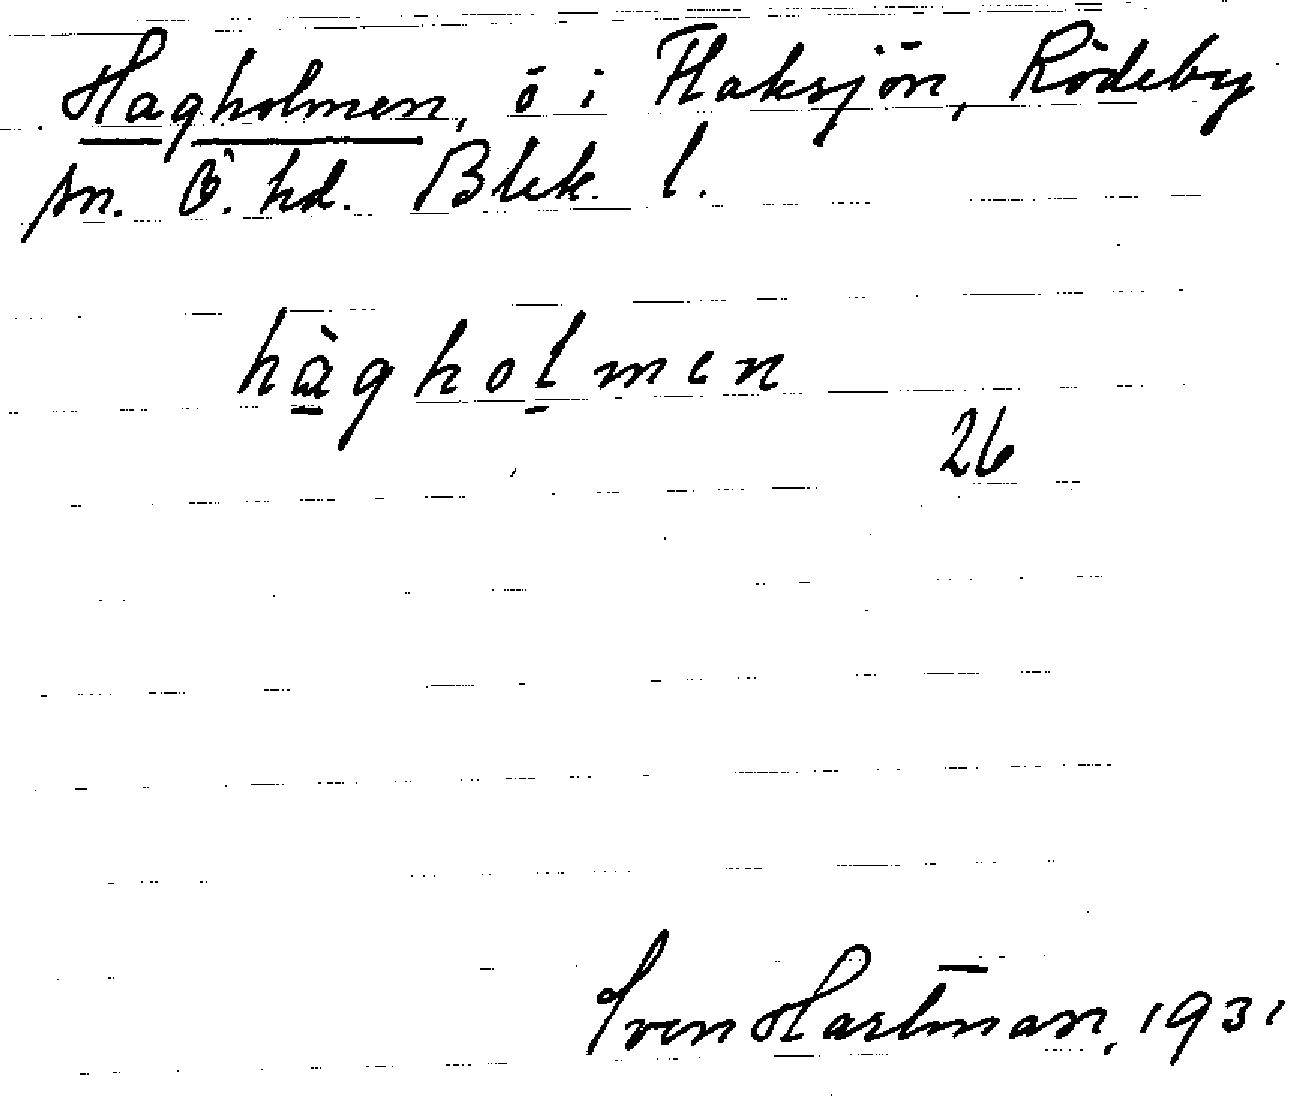 Hagholmen, ö i Flaksjön, Rödeby
sn. Ö. hd. Blek. l.
hàgholmen
26
Sven Hartman, 1931